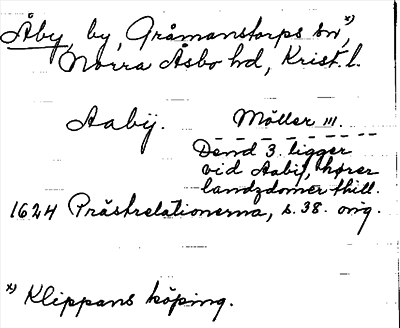 Åby, by, Gråmanstorps sn,*)
Norra Åsbo hd, Krist. l.
Aabÿ. Möller III.
Dend 3. ligger
vid Aabÿ, hører
landzdomer thill.
1624 Prästrelationerna, s. 38. orig.
*) Klippans köping.